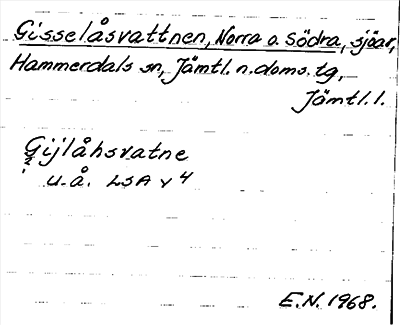 Gisselåsvattnen, Norra o. Södra, sjöar,
Hammerdals sn, Jämtl. n. doms. tg,
Jämtl. l.
Gijlåhsvatne
u. å. LSA v 4
E.N. 1968.